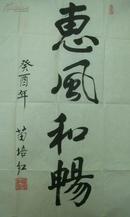 惠風和暢
癸酉年
苗培红